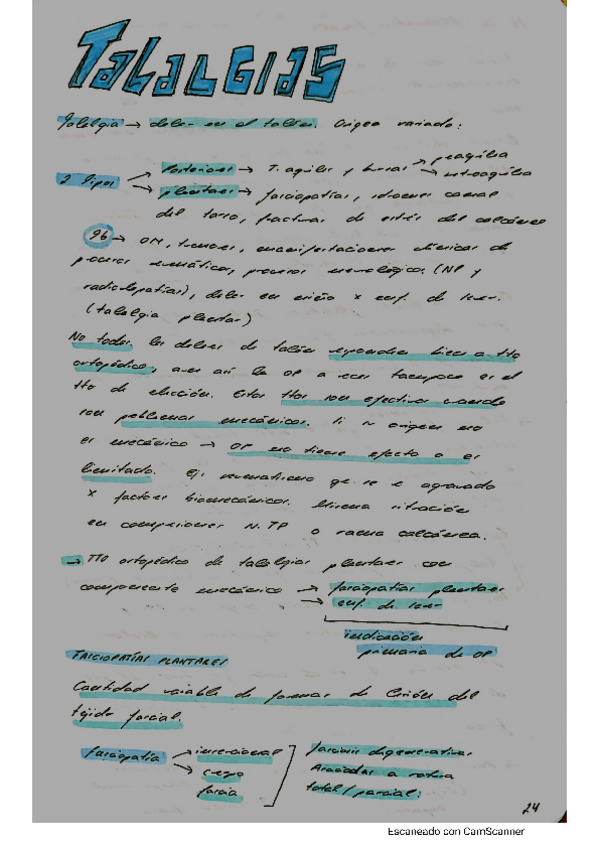 TALALGIAS
Talalgia → dolor en el talón. Origen variado:
2 tipos → Posteriores → T. aquiles y bursas → preaquílea
→ retroaquílea
→ plantares → fasciopatías, síndrome canal
del tarso, fracturas de estrés del calcáneo
→ OM, tumores, manifestaciones clínicas de
proceso reumático, proceso neurológico (NP y
radiculopatías), dolor en niño x enf. de sever.
(talalgia plantar)
No todos los dolores de talón responden bien a tto
ortopédico, aun así la OP a veces tampoco es el
tto de elección. Estos ttos son efectivos cuando
son problemas mecánicos. Si origen no
es mecánico → OP no tiene efecto o es
limitado. Ej reumatismo qe se e agravado
x factores biomecánicos. Misma situación
en compresiones N.TP o rama calcánea.
→ TTO ortopédico de talalgias plantares con
componente mecánico → fasciopatías plantares
→ enf. de sever
indicación
primaria de OP
FASCIOPATÍAS PLANTARES
Cantidad variable de formas de lesión del
tejido fascial.
fasciopatía → insercional
→ cuerpo
fascia
fasciosis degenerativas
Asociadas a rotura
total/parcial.
24
Escaneado con CamScanner